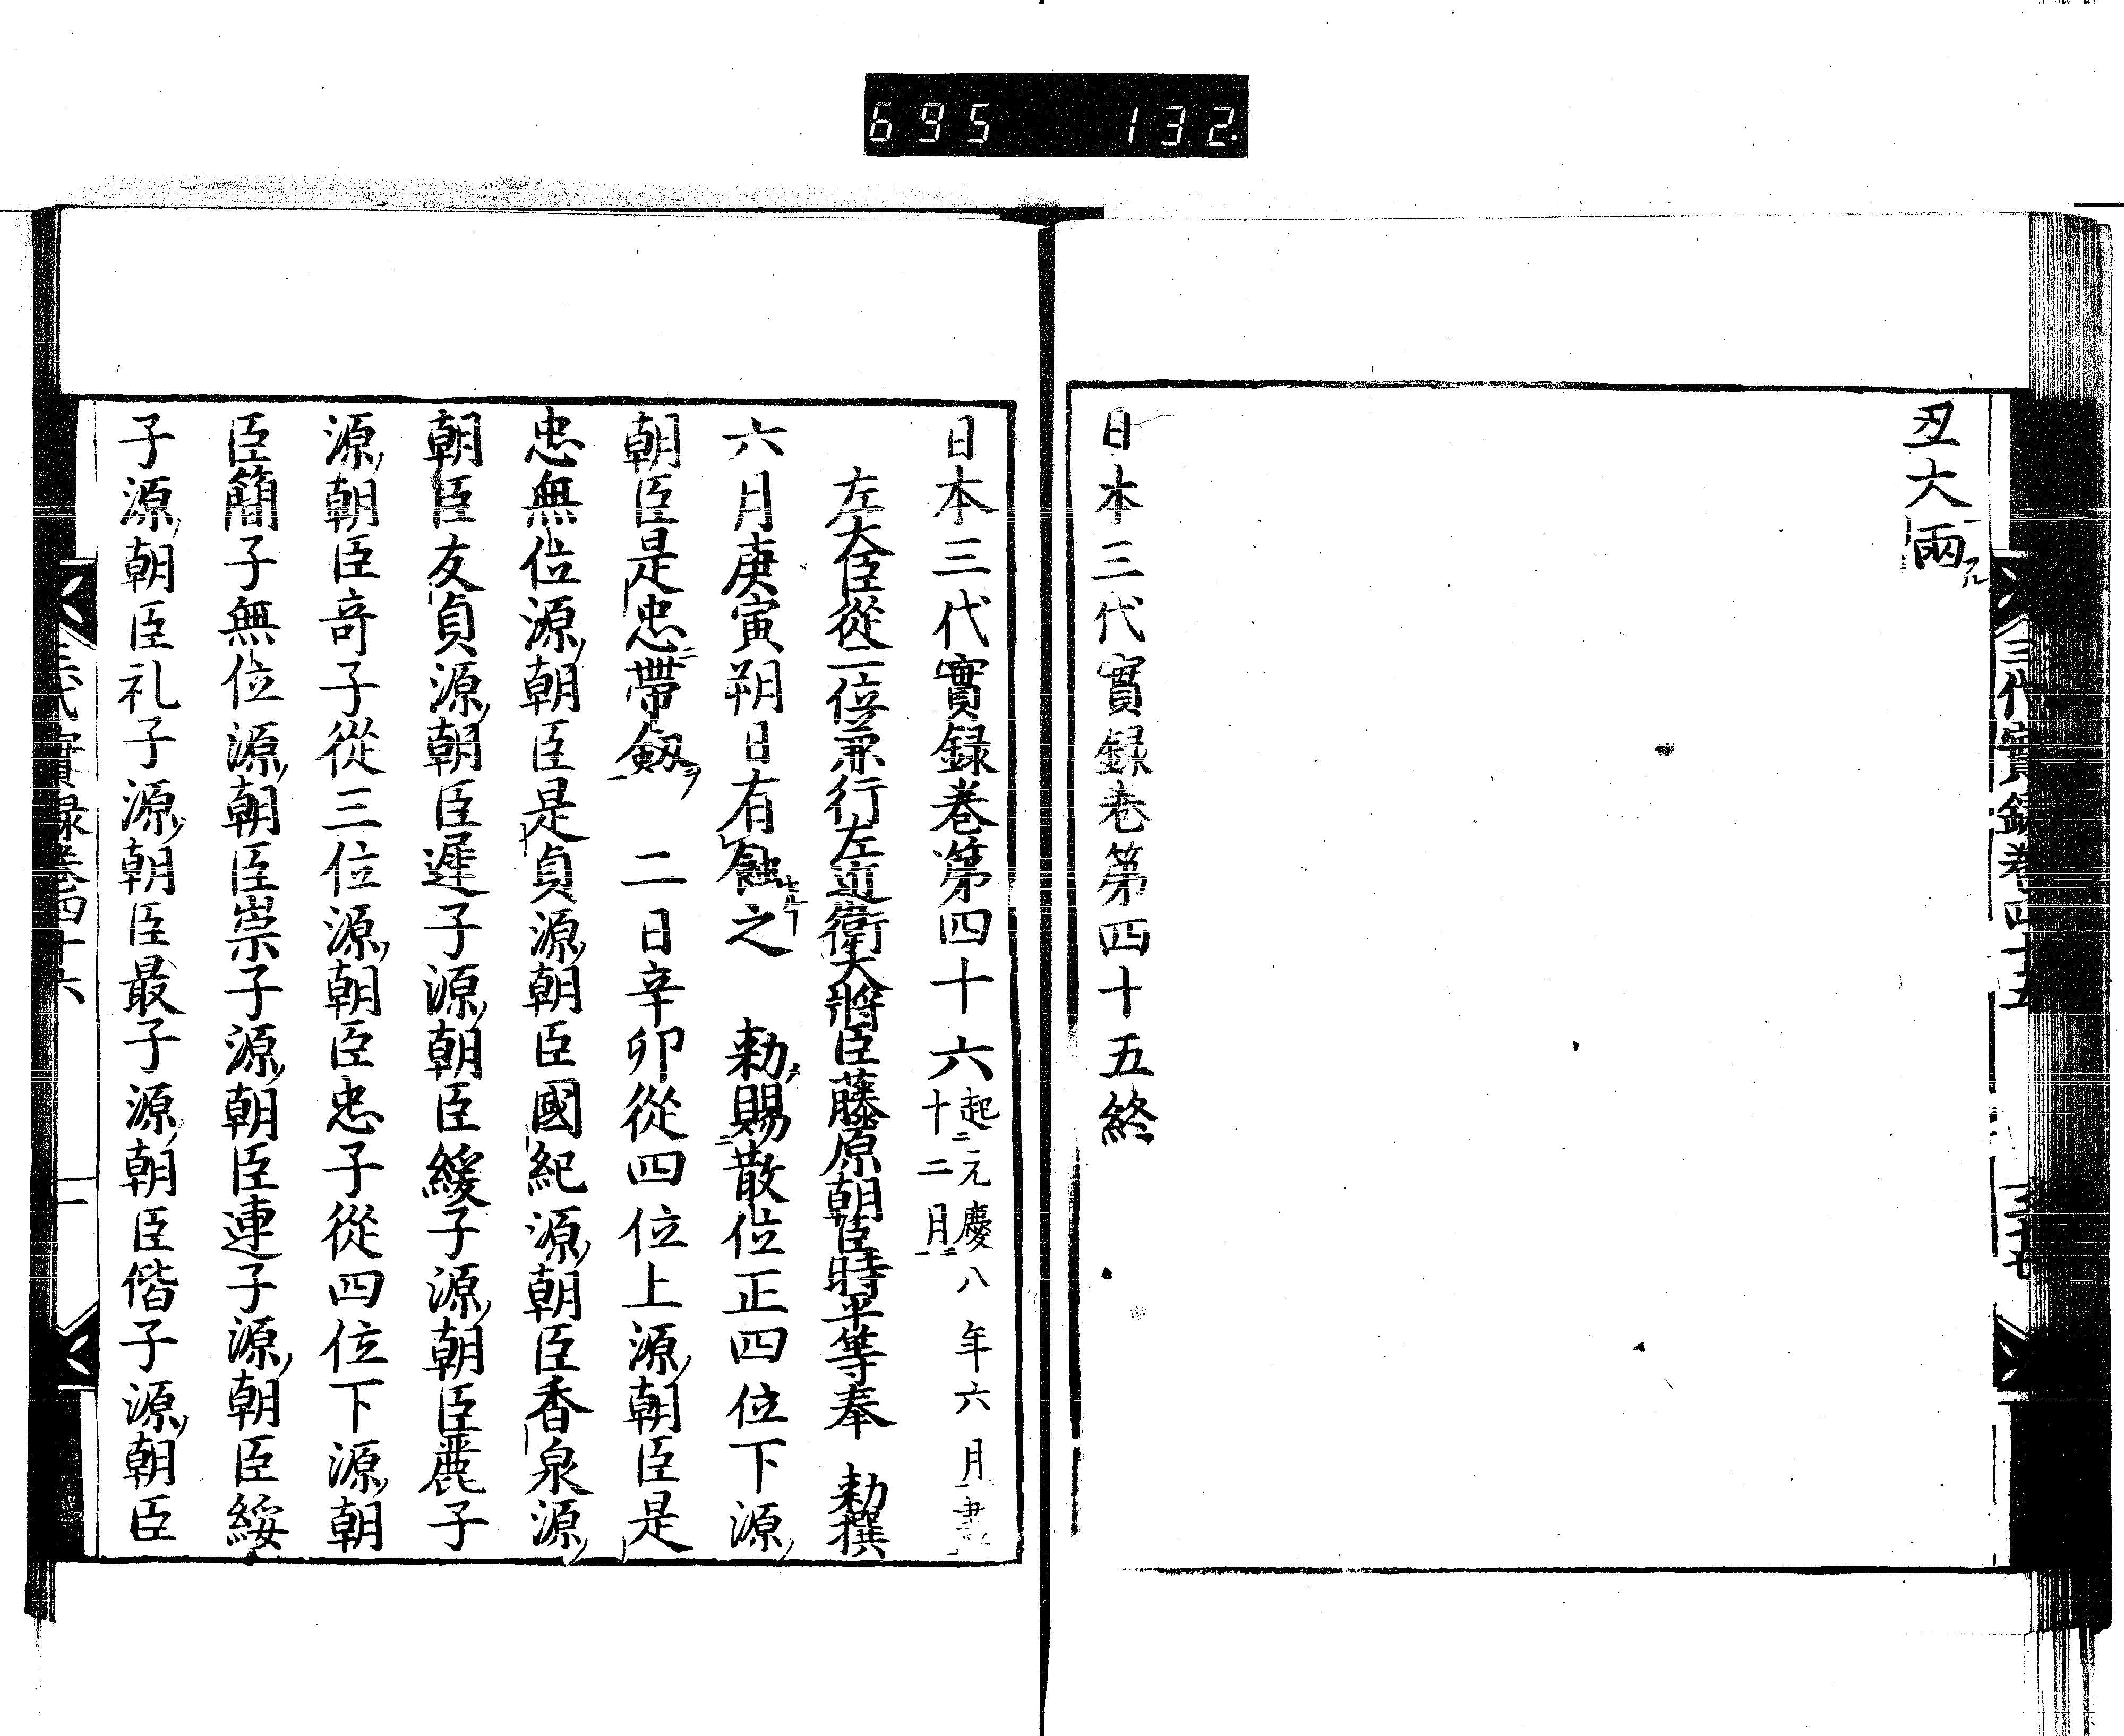 695 132
丑大雨
三代實録卷四十五
日本三代實録卷第四十五終
日本三代實録卷第四十六 起元慶八年六月盡十二月
左大臣從二位兼行左近衛大將臣藤原朝臣時平等奉 勅撰
六月庚寅朔日有蝕之 勅賜散位正四位下源
朝臣是忠帶劔 二日辛卯從四位上源朝臣是
忠無位源朝臣是貞源朝臣國紀源朝臣香泉源
朝臣友貞源朝臣遲子源朝臣緩子源朝臣麗子
源朝臣奇子從三位源朝臣忠子從四位下源朝
臣簡子無位源朝臣崇子源朝臣連子源朝臣綏
子源朝臣礼子源朝臣最子源朝臣偕子源朝臣
三代實録卷四十六 一